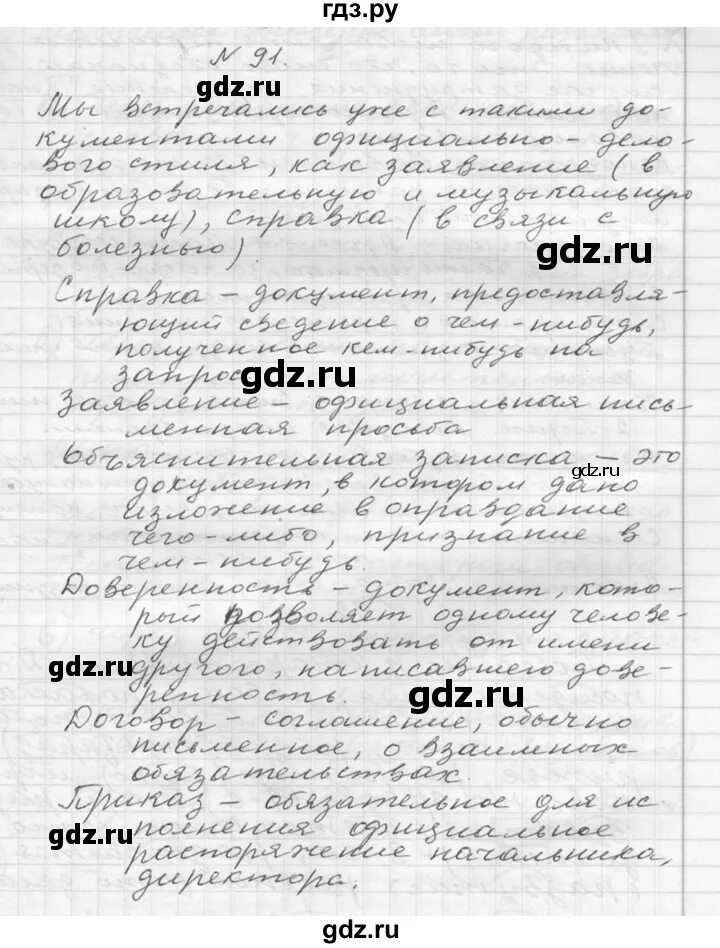 гдз.ру
N 91.
Мы встречались уже с такими до-
кументами официально-дело-
вого стиля, как заявление (в
образовательную и музыкальную
школу), справка (в связи с
болезнью)
gdz.ru
Справка - документ, предоставля-
ющий сведение о чем-нибудь,
полученное кем-нибудь по
запрос
gdz.ru
Заявление - официальная пись-
менная просьба
Объяснительная записка - это
gdz.ru
документ, в котором дано
изложение в оправдание
чего-либо, признание в
чем-нибудь.
Доверенность - документ, кото-
рый позволяет одному челове-
ку действовать от имени
gdz.ru
другого, написавшего дове-
ренность.
gdz.ru
Договор - соглашение, обычно
письменное, о взаимных
обязательствах.
Приказ - обязательное для ис-
полнения официальное
gdz.ru
распоряжение начальника,
директора.
gdz.ru